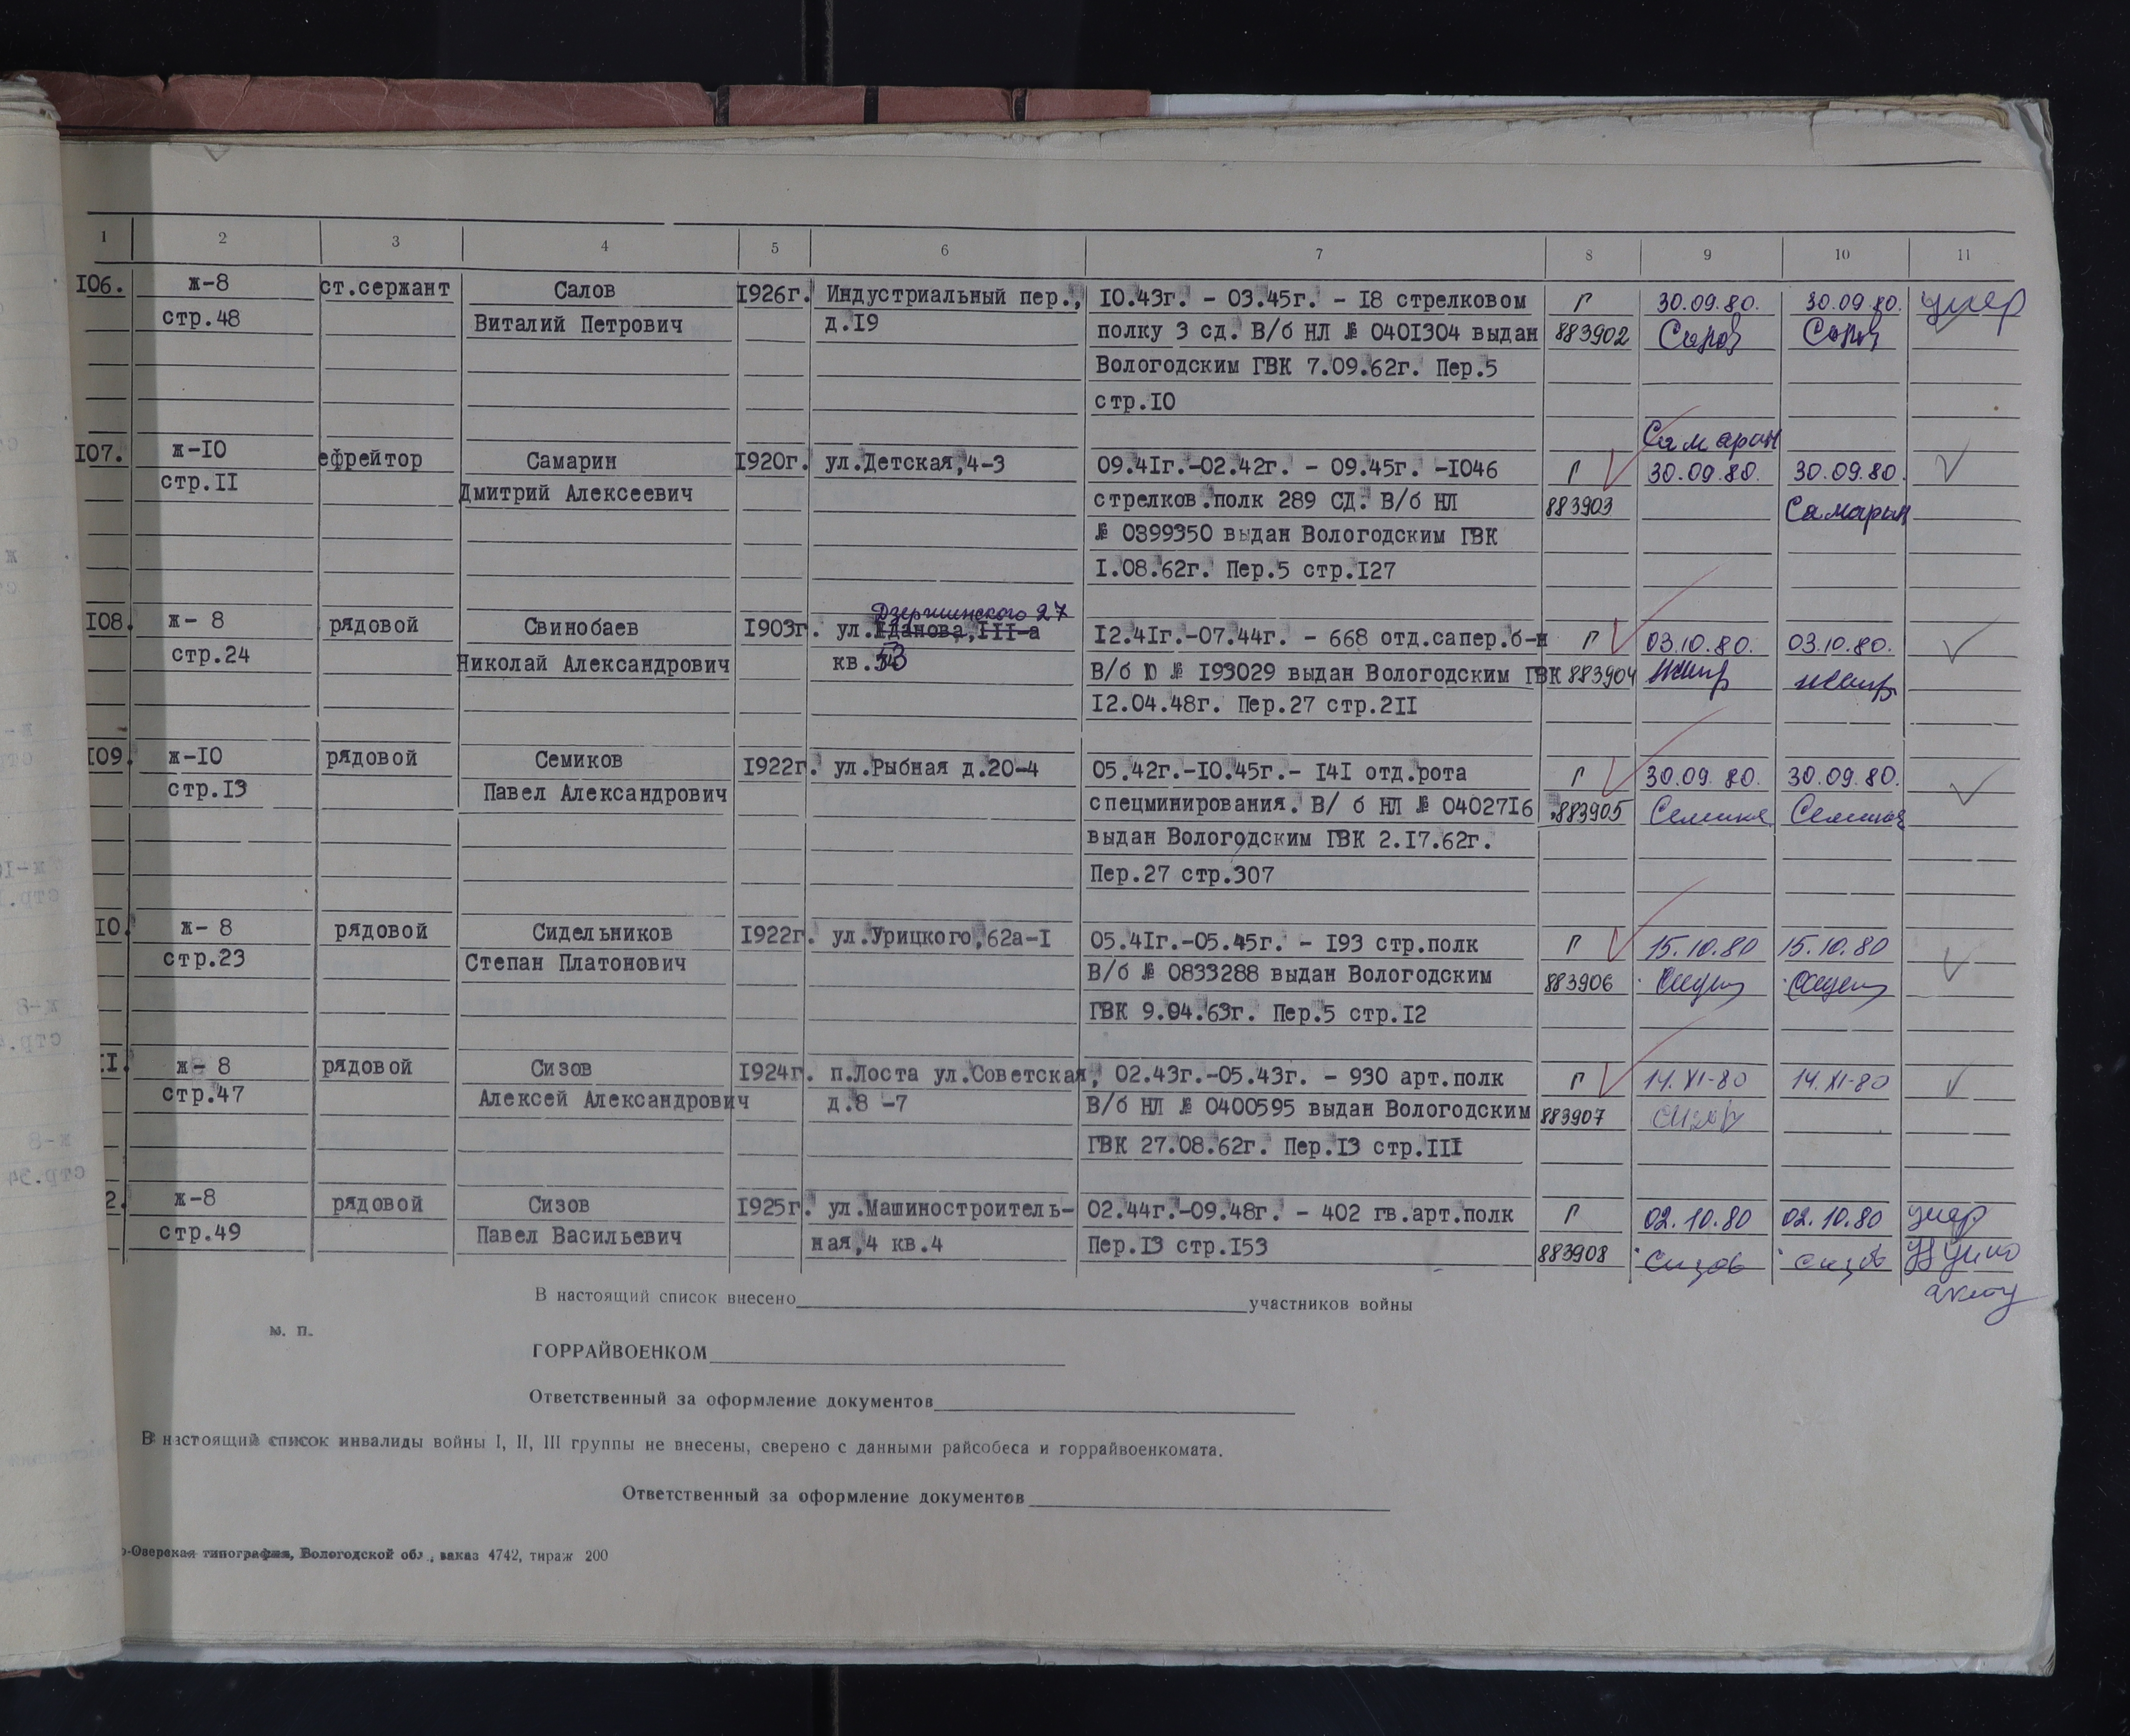 1 2 3 4 5 6 7 8 9 10 11
I06. ж-8 ст.сержант Салов I926г. Индустриальный пер., I0.43г. - 03.45г. - I8 стрелковом Г 30.09.80. 30.09.80. умер
стр.48 Виталий Петрович д.I9 полку 3 сд. В/б НЛ № 040I304 выдан 883902
Вологодским ГВК 7.09.62г. Пер.5
стр.I0
Самарин
I07. ж-I0 ефрейтор Самарин I920г. ул.Детская,4-3 09.4Iг.-02.42г. - 09.45г. -I046 Г 30.09.80. 30.09.80.
стр.II Дмитрий Алексеевич стрелков.полк 289 СД. В/б НЛ 883903 Самарин
№ 0399350 выдан Вологодским ГВК
I.08.62г. Пер.5 стр.I27
Дзержинского 27
I08. ж- 8 рядовой Свинобаев I903г. ул.Жданова,III-а I2.4Iг.-07.44г. - 668 отд.сапер.б-н Г 03.10.80. 03.10.80.
стр.24 Николай Александрович кв. В/б Ю № I93029 выдан Вологодским ГВК 883904
I2.04.48г. Пер.27 стр.2II
I09. ж-I0 рядовой Семиков I922г. ул.Рыбная д.20-4 05.42г.-I0.45г.- I4I отд.рота Г 30.09.80. 30.09.80.
стр.I3 Павел Александрович спецминирования. В/ б НЛ № 04027I6 883905
выдан Вологодским ГВК 2.I7.62г.
Пер.27 стр.307
I0. ж- 8 рядовой Сидельников I922г. ул.Урицкого,62а-I 05.4Iг.-05.45г. - I93 стр.полк Г 15.10.80 15.10.80
стр.23 Степан Платонович В/б № 0833288 выдан Вологодским 883906
ГВК 9.04.63г. Пер.5 стр.I2
II. ж- 8 рядовой Сизов I924г. п.Лоста ул.Советская, 02.43г.-05.43г. - 930 арт.полк Г 14.XI-80 14.XI-80
стр.47 Алексей Александрович д.8 -7 В/б НЛ № 0400595 выдан Вологодским 883907
ГВК 27.08.62г. Пер.I3 стр.III
2. ж-8 рядовой Сизов I925г. ул.Машиностроитель- 02.44г.-09.48г. - 402 гв.арт.полк Г 02.10.80 02.10.80 умер
стр.49 Павел Васильевич ная,4 кв.4 Пер.I3 стр.I53 883908 Сизов Сизов
В настоящий список внесено участников войны
м. п.
ГОРРАЙВОЕНКОМ
Ответственный за оформление документов
В настоящий список инвалиды войны I, II, III группы не внесены, сверено с данными райсобеса и горрайвоенкомата.
Ответственный за оформление документов
о-Озерская типография, Вологодской обл., заказ 4742, тираж 200